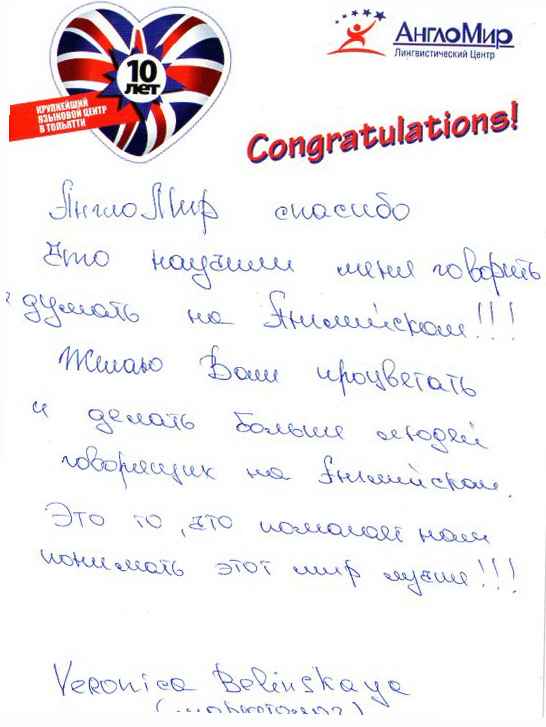 10
ЛЕТ
КРУПНЕЙШИЙ
ЯЗЫКОВОЙ ЦЕНТР
В ТОЛЬЯТТИ
АнглоМир
Лингвистический Центр
Congratulations!
АнглоМир спасибо
что научили меня говорить
и думать на Английском!!!
Желаю Вам процветать
и делать больше людей
говорящих на Английском.
Это то, что помогает нам
понимать этот мир лучше!!!
Veronica Belinskaya